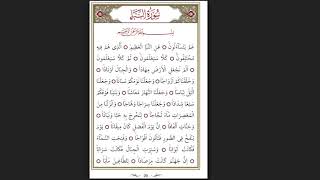 سُورَةُ النَّبَإِ
بِسْمِ اللَّهِ الرَّحْمَٰنِ الرَّحِيمِ
عَمَّ يَتَسَاءَلُونَ عَنِ النَّبَإِ الْعَظِيمِ الَّذِي هُمْ فِيهِ
مُخْتَلِفُونَ كَلَّا سَيَعْلَمُونَ ثُمَّ كَلَّا سَيَعْلَمُونَ
أَلَمْ نَجْعَلِ الْأَرْضَ مِهَادًا وَالْجِبَالَ أَوْتَادًا
وَخَلَقْنَاكُمْ أَزْوَاجًا وَجَعَلْنَا نَوْمَكُمْ سُبَاتًا وَجَعَلْنَا
اللَّيْلَ لِبَاسًا وَجَعَلْنَا النَّهَارَ مَعَاشًا وَبَنَيْنَا فَوْقَكُمْ
سَبْعًا شِدَادًا وَجَعَلْنَا سِرَاجًا وَهَّاجًا وَأَنْزَلْنَا مِنَ
الْمُعْصِرَاتِ مَاءً ثَجَّاجًا لِنُخْرِجَ بِهِ حَبًّا وَنَبَاتًا
وَجَنَّاتٍ أَلْفَافًا إِنَّ يَوْمَ الْفَصْلِ كَانَ مِيقَاتًا يَوْمَ
يُنْفَخُ فِي الصُّورِ فَتَأْتُونَ أَفْوَاجًا وَفُتِحَتِ السَّمَاءُ
فَكَانَتْ أَبْوَابًا وَسُيِّرَتِ الْجِبَالُ فَكَانَتْ سَرَابًا
إِنَّ جَهَنَّمَ كَانَتْ مِرْصَادًا لِلطَّاغِينَ مَآبًا